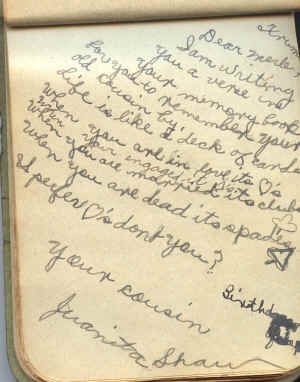 Dear Merle
I am writing
you a verse in
your memory book
for you to remember your
old cousin by;
Life is like a deck of cards
When you are in love its ♡'s
When your engaged it's
When you are married it's clubs
When you are dead its spades
I perfer ♡'s dont you?
Your cousin
Juanita Shaw
Birthday